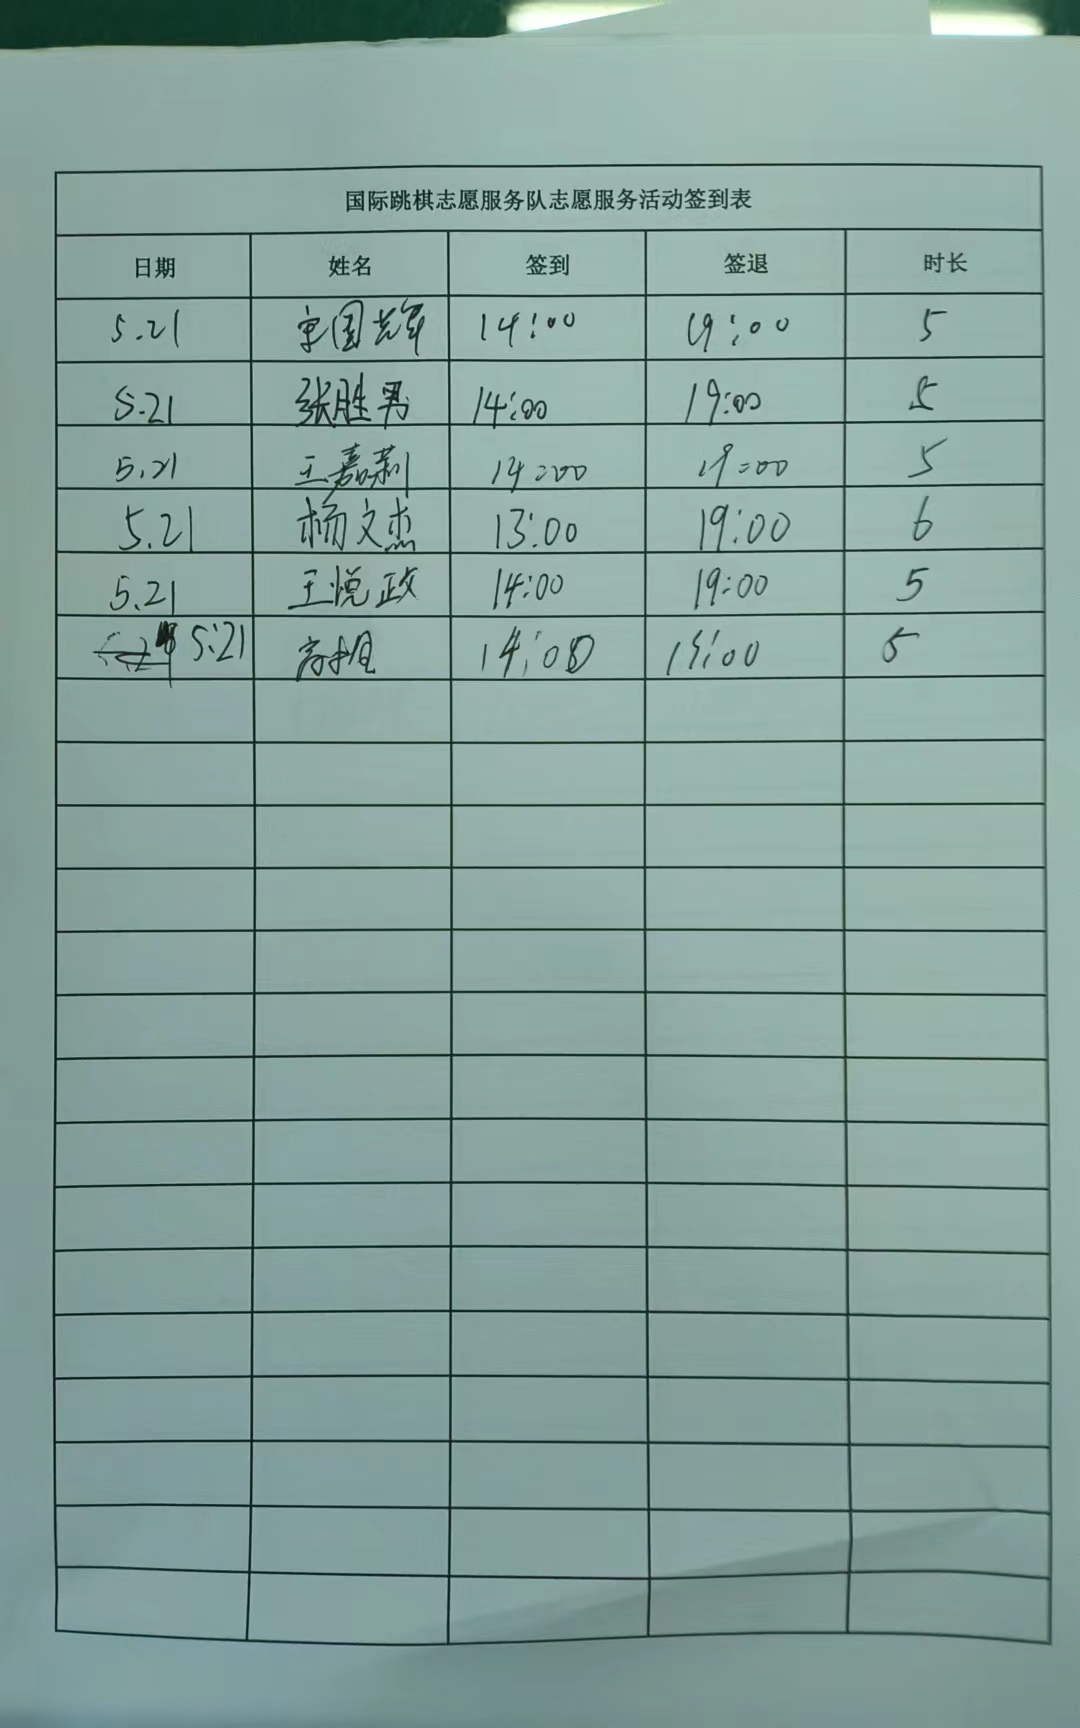 国际跳棋志愿服务队志愿服务活动签到表
日期 姓名 签到 签退 时长
5.21 国 14:00 19:00 5
5.21 张胜男 14:00 19:00 5
5.21 王嘉莉 14:00 19:00 5
5.21 杨文杰 13:00 19:00 6
5.21 王悦政 14:00 19:00 5
5:21 高 14:00 19:00 5